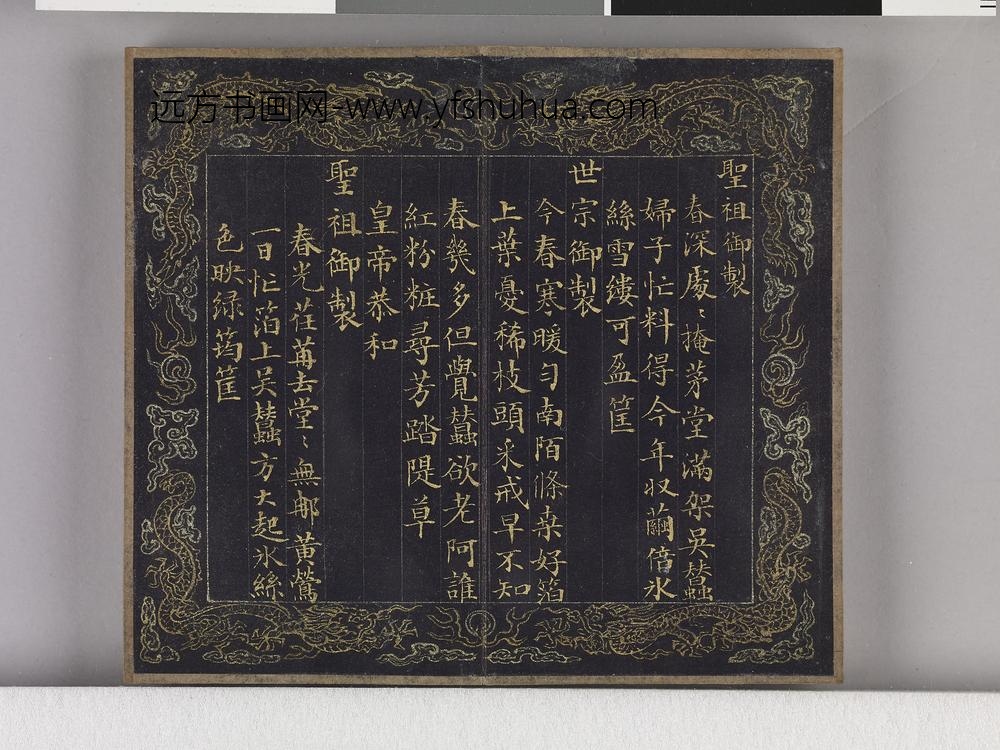 远方书画网-www.yfshuhua.com
聖祖御製
春深處〻掩茅堂滿架吳蠶
婦子忙料得今年収繭倍氷
絲雪縷可盈筐
世宗御製
今春寒暖勻南陌條桒好箔
上葉憂稀枝頭采戒早不知
春幾多但覺蠶欲老阿誰
紅粉粧尋芳踏隄草
皇帝恭和
聖祖御製
春光荏苒去堂〻無那黃鶯
一日忙箔上吴蠶方大起氷絲
色映緑筠筐